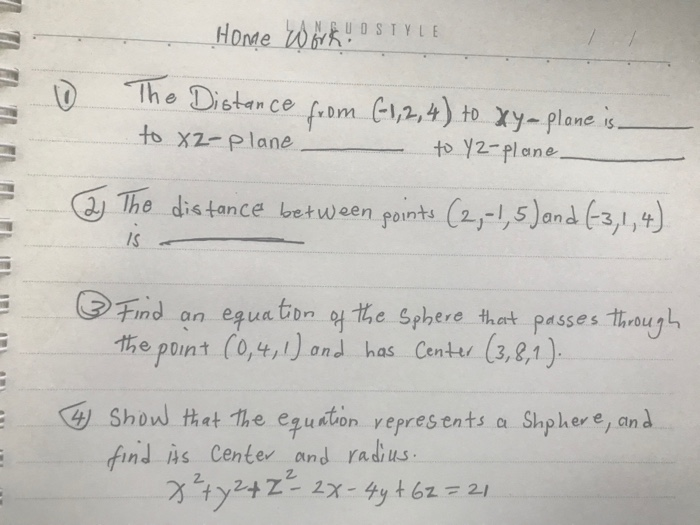 LANGUOSTYLE
Home Work!
① The Distance from (-1,2,4) to xy-plane is ______
to xz-plane ______ to yz-plane ______
② The distance between points (2,-1,5) and (-3,1,4)
is ______
③ Find an equation of the sphere that passes through
the point (0,4,1) and has Center (3,8,1).
④ Show that the equation represents a Shphere, and
find its Center and radius.
x²+y²+z²-2x-4y+6z=21